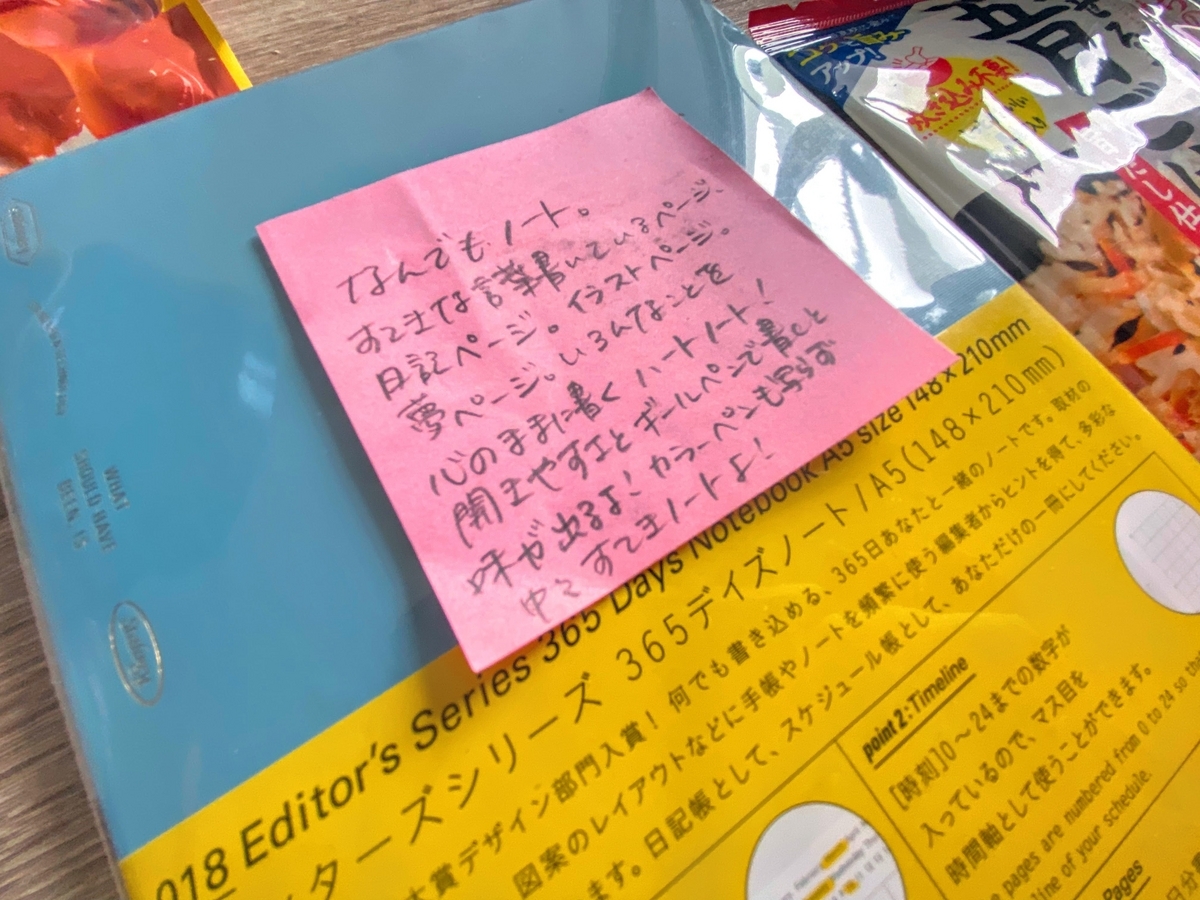 なんでもノート。
すてきな言葉書いているページ、
日記ページ。イラストページ。
夢ページ。いろんなことを
心のままに書くハートノート!
開きやすさとボールペンで書くと
味が出るよ!カラーペンも写らず
すてきノートよ!
018 Editor's Series 365 Days Notebook A5 size 148×210mm
ターズシリーズ 365デイズノート/A5(148×210mm)
大賞デザイン部門入賞! 何でも書き込める、365日あなたと一緒のノートです。取材の
図案のレイアウトなどに手帳やノートを頻繁に使う編集者からヒントを得て、多彩な
ます。日記帳として、スケジュール帳として、あなただけの一冊にしてください。
point 2 : Timeline
[時刻]0〜24までの数字が
入っているので、マス目を
時間軸として使うことができます。
pages are numbered from 0 to 24 so
line of your schedule.
Pages
日分
WHAT
SHOULD HAVE
BEEN, IS
アップ!
炊き込み不要!
だし